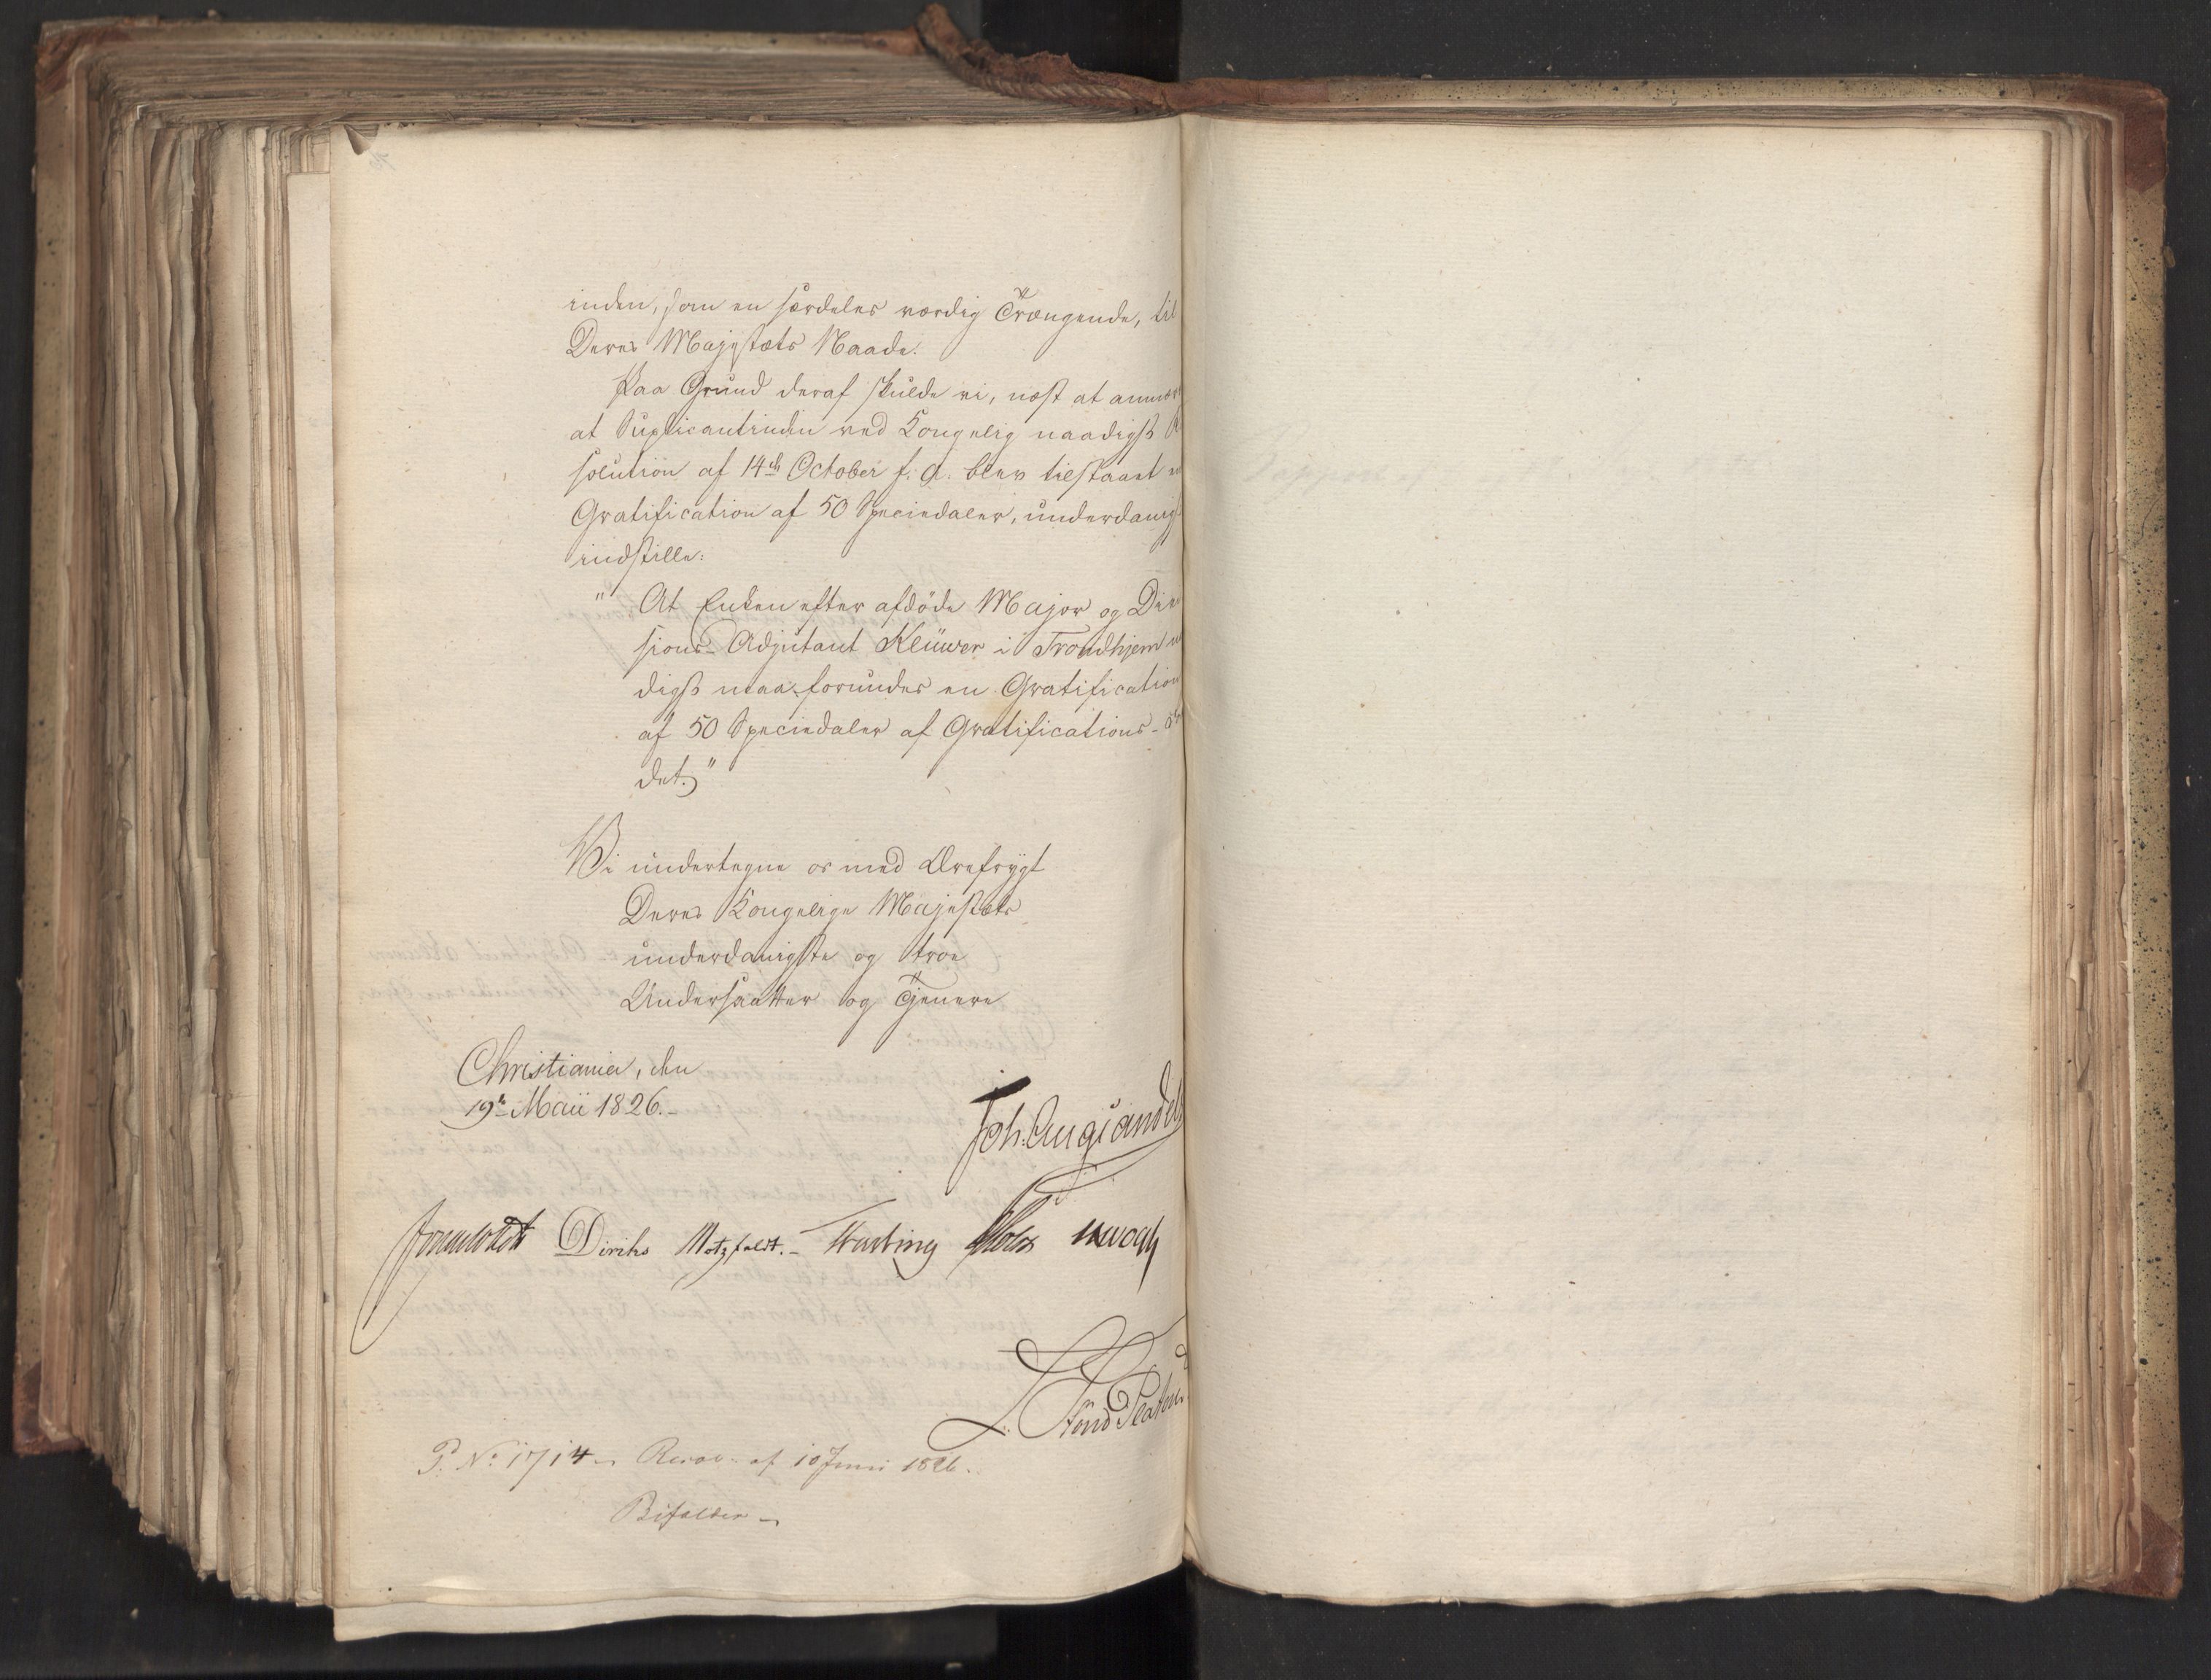 inden, som en særdeles værdig Trængende, til
Deres Majestæts Naade.
Paa Grund deraf skulde vi, næst at anmær
at Suplicantinden ved Kongelig naadigst R
solution af 14de October f. A. blev tilstaaet en
Gratification af 50 Speciedaler, underdanigst
indstille:
" At Enken efter afdöde Major og Divi
sions-Adjutant Klüwer i Trondhjem na
digst maa forundes en Gratification
af 50 Speciedaler af Gratifications-
det."
Vi undertegne os med Ærefrygt
Deres Kongelige Majestæts
underdanigste og troe
Undersaatter og Tjenere
Christiania, den
19de Maii 1826.
Joh: Aug: Sandels
Sommerhielm Diriks Motzfeldt. Krog
P. No 1714 Resol. af 10 Juni 1826.
Bifaldes